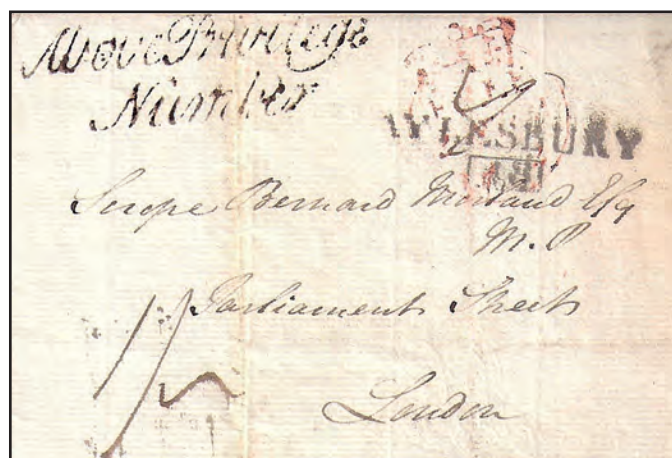 Above Privilege
Number
AYLESBURY
Scrope Bernard Morland Esq
M.P
Parliament Street
London